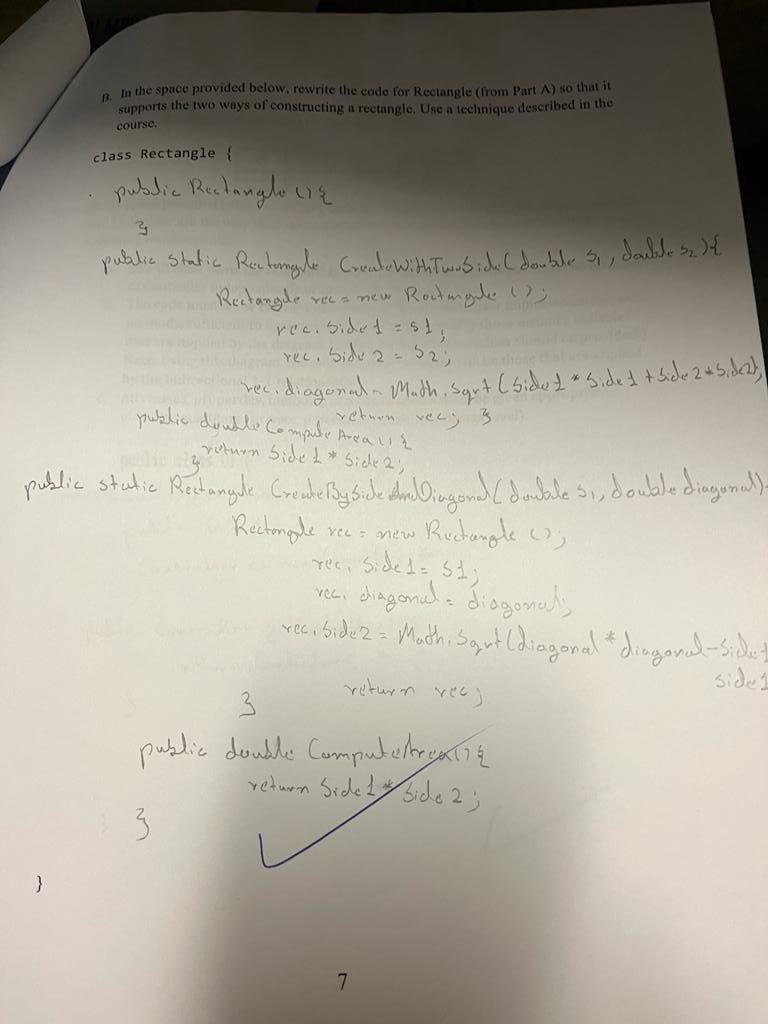 B. In the space provided below, rewrite the code for Rectangle (from Part A) so that it
supports the two ways of constructing a rectangle. Use a technique described in the
course.
class Rectangle {
public Rectangle () {
}
public static Rectangle CreateWithTwoSide (double s1, double s2) {
Rectangle rec = new Rectangle ();
rec. Side1 = s1;
rec. Side2 = S2;
rec. diagonal = Math. Sqrt (Side1 * Side1 + Side2 * Side2);
return rec; }
public double Compute Area () {
return Side1 * Side2;
}
public static Rectangle CreateBySideAndDiagonal (double s1, double diagonal)
Rectangle rec = new Rectangle ();
rec. Side1 = S1;
rec. diagonal = diagonal;
rec. Side2 = Math. Sqrt (diagonal * diagonal - Side1
side1
return rec;
}
public double ComputeArea () {
return Side1 * Side2;
}
}
7